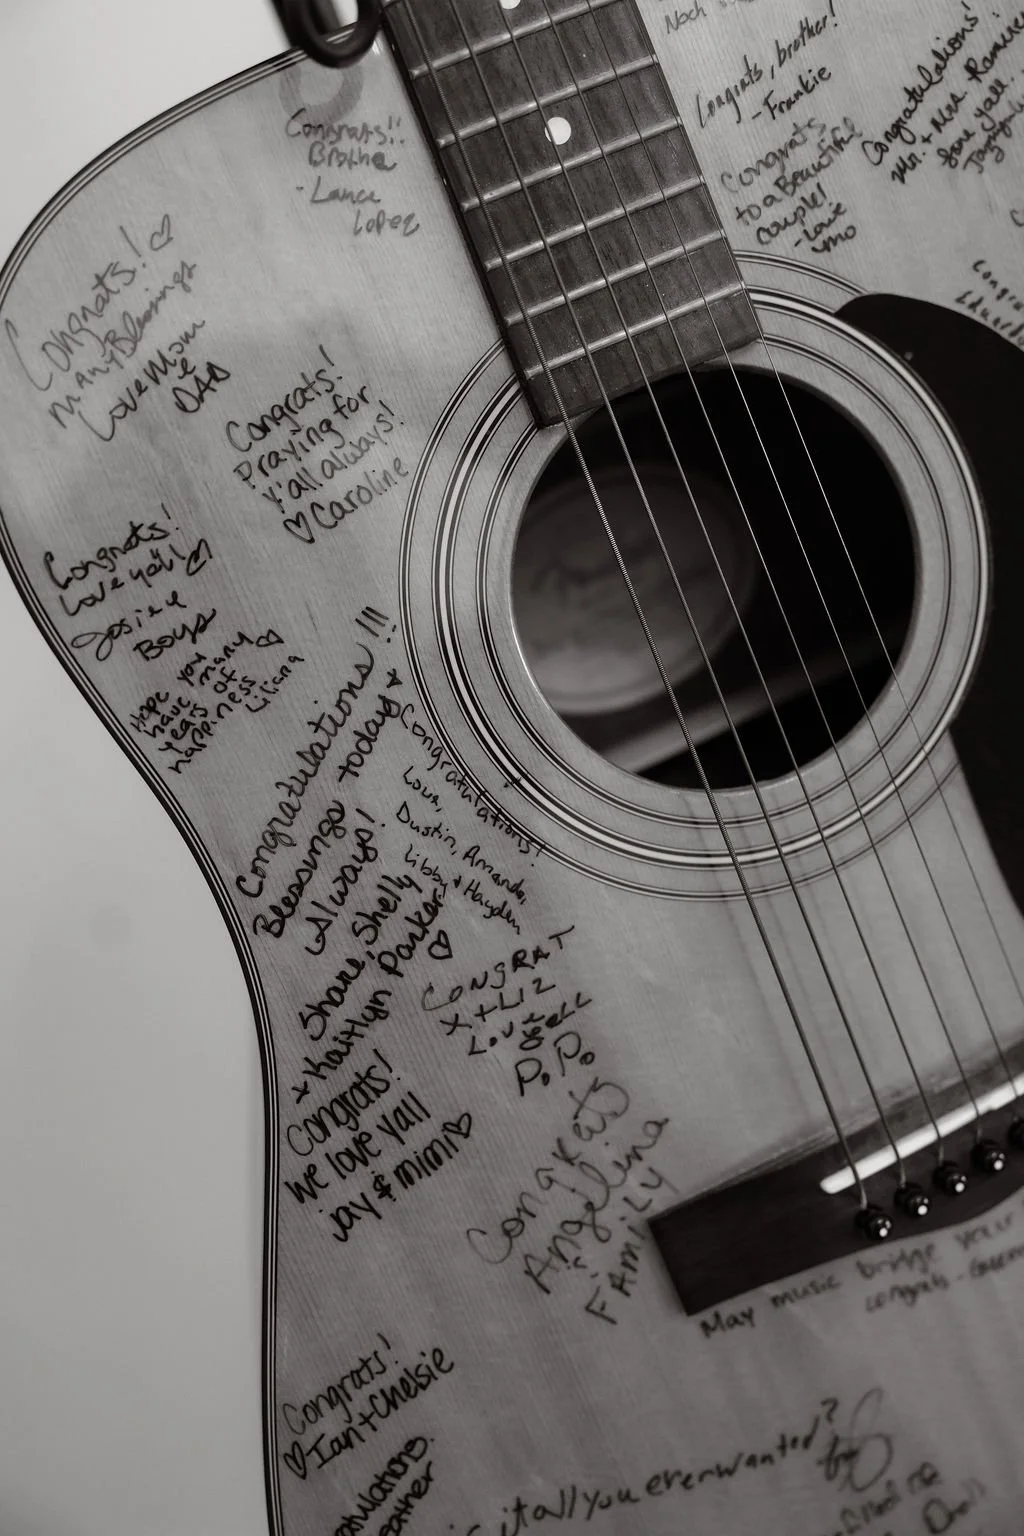 Noch
Congrats, brother!
- Frankie
Congratulations!
Mr. + Mrs. Ramirez
love yall..
Congrats
to a Beautiful
couple!
- Love
Mo
Congrats!!
Brothe
- Lance
Lopez
Congrats!
Many Blessings
Love Mom
&
DAD
Congrats!
praying for
y'all always!
♡ Caroline
Congrats!
Love yall! ♡
Josie &
Boys
Hope you
have many
years of
happiness
♡ Liliana
Congratulations!!!
Blessings today &
Always!
Shane, Shelly
& Kaitlyn Parker!
♡
Congratulations!
Love,
Dustin, Amanda,
Libby & Hayden
CONGRAT
X + LIZ
LOVE
P. Po
Congrats!
we love yall
jay & mimi ♡
Congrats
Angelina
FAMILY
May music bridge your
congrats -
Congrats!
♡ Ian + Chelsie
it all you ever wanted?